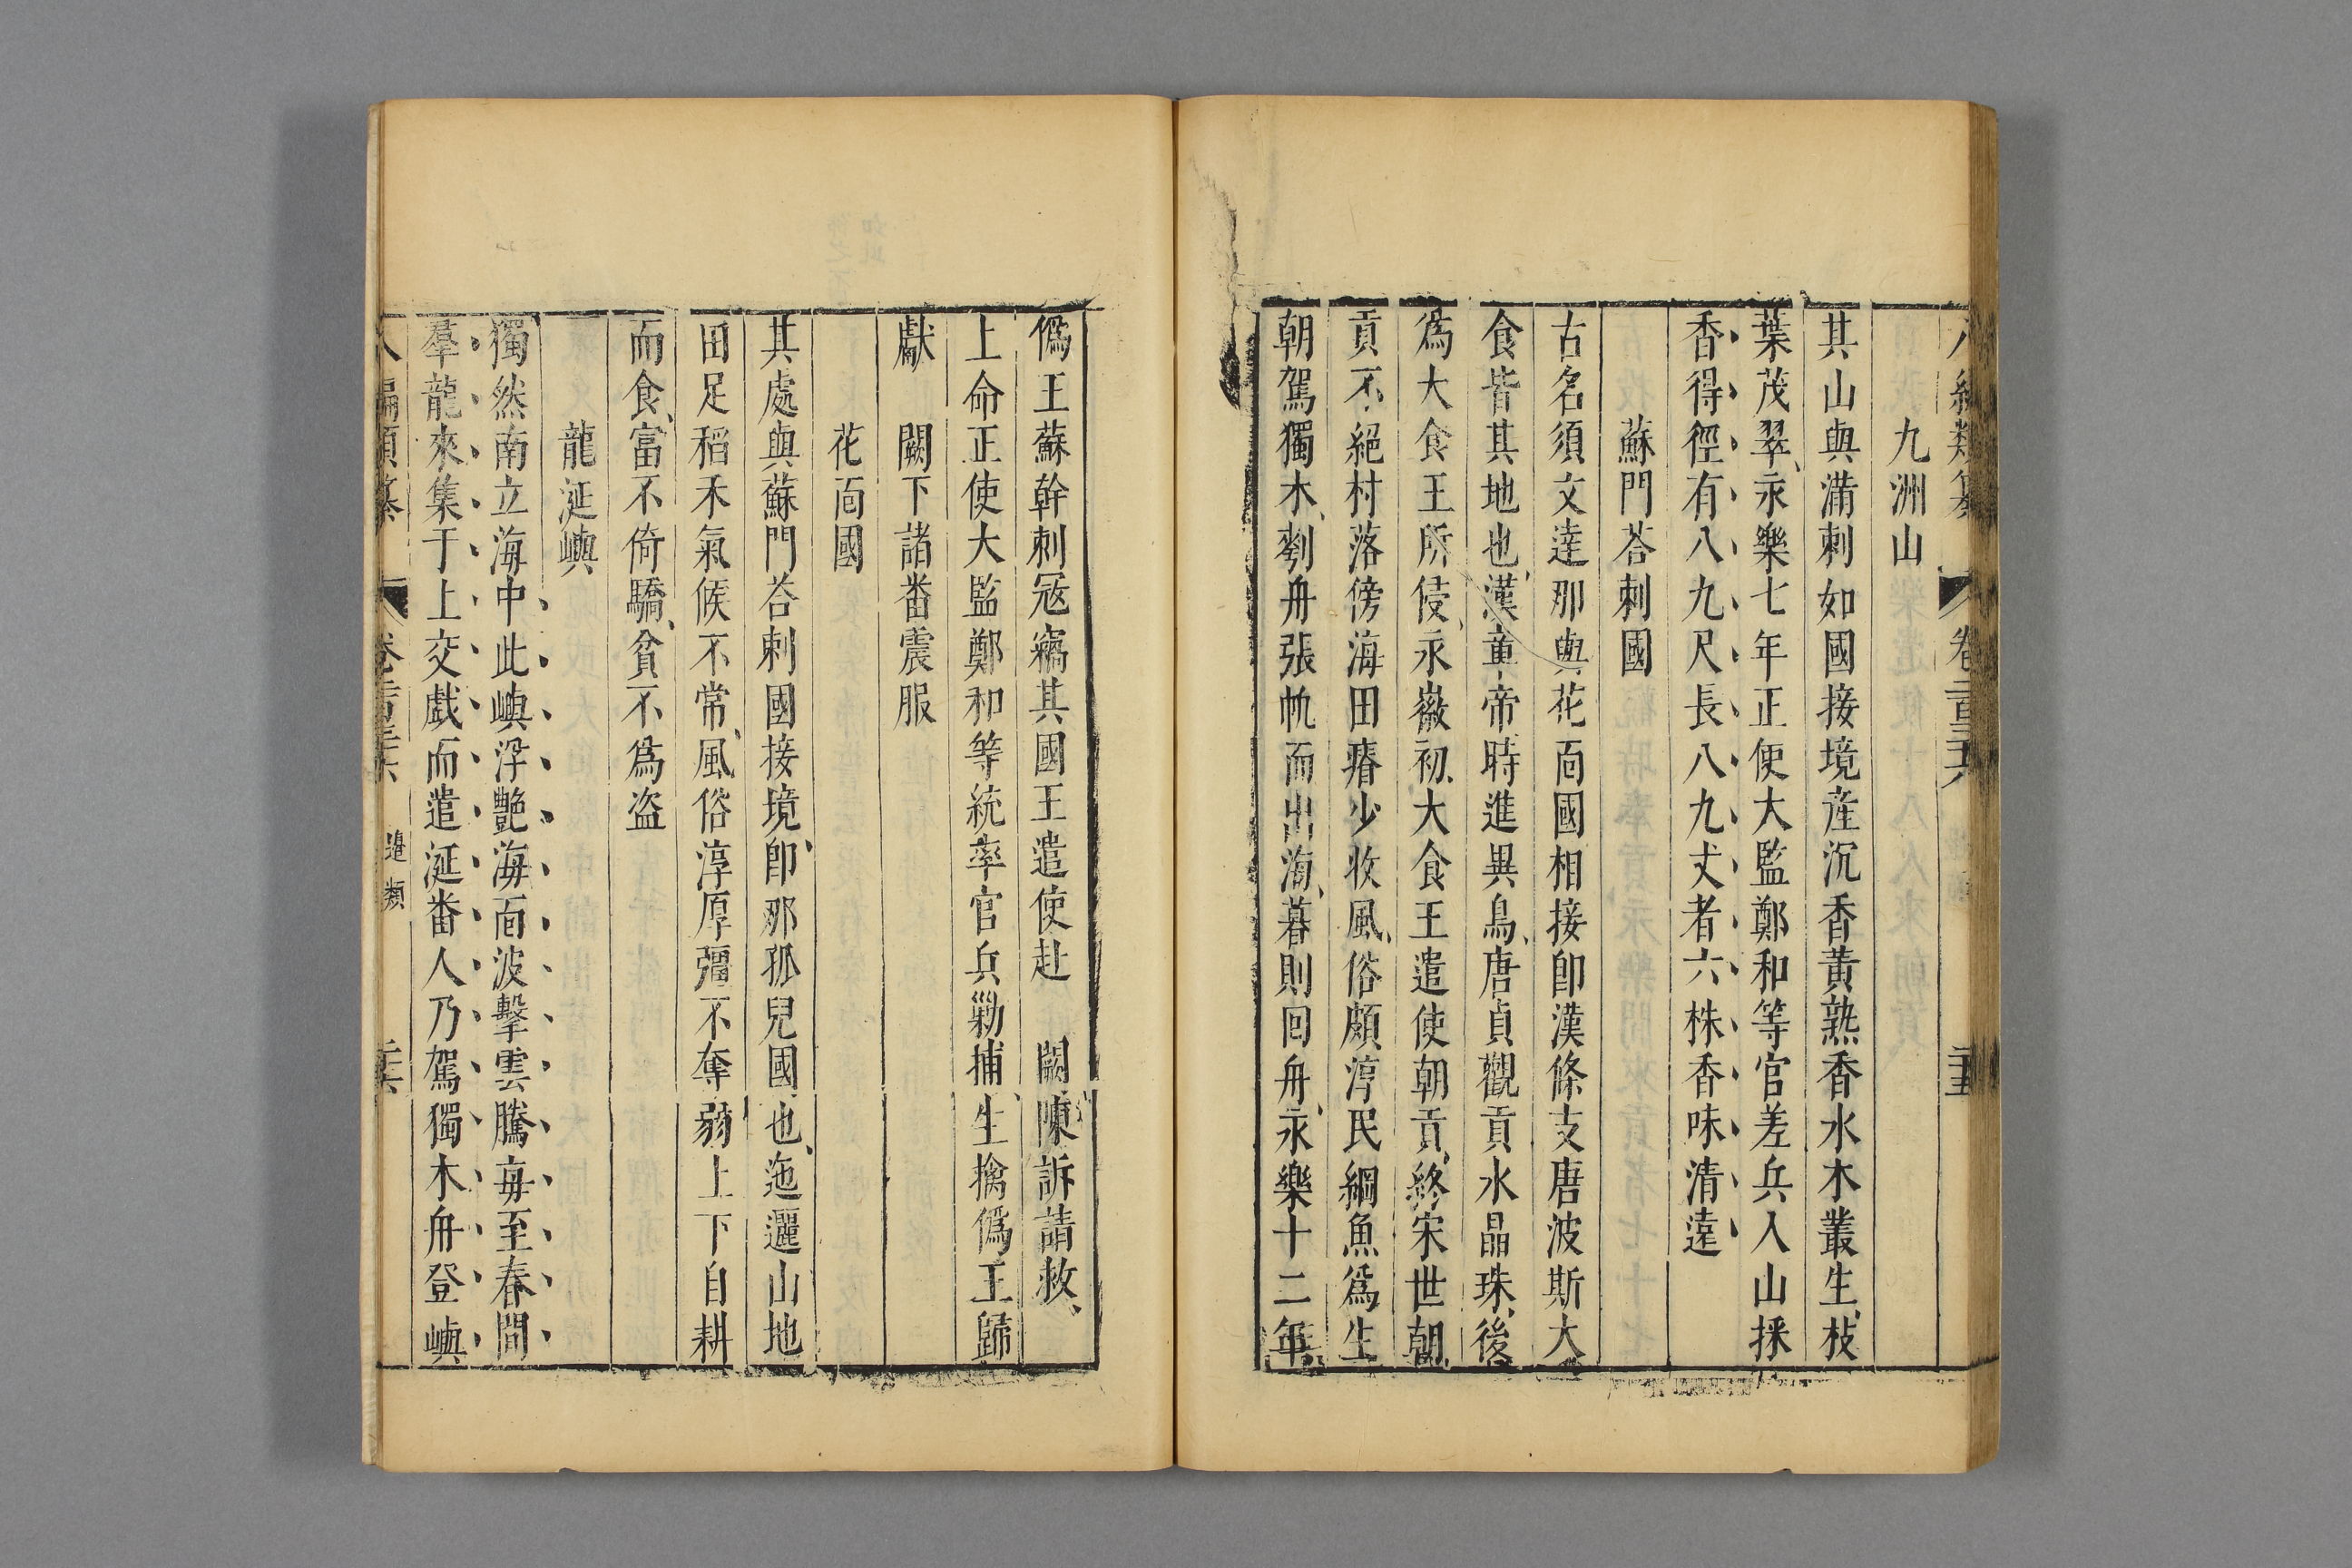 九洲山
其山與滿刺如國接境産沉香黃熟香水木叢生枝
葉茂翠永樂七年正使大監鄭和等官差兵入山採
香得徑有八九尺長八九丈者六株香味清遠
蘇門荅刺國
古名須文達那與花靣國相接卽漢條支唐波斯大
食皆其地也漢章帝時進異鳥唐貞觀貢水晶珠後
爲大食王所侵永徽初大食王遣使朝貢終宋世朝
貢不絕村落傍海田瘠少收風俗頗淳民綱魚爲生
朝駕獨木刳舟張帆而出海暮則回舟永樂十二年
僞王蘇幹刺冦竊其國王遣使赴　闕陳訴請救
上命正使大監鄭和等統率官兵勦捕生擒僞王歸
獻　闕下諸番震服
花靣國
其處與蘇門荅刺國接境卽那孤兒國也迤邐山地
田足稻禾氣候不常風俗淳厚彊不奪弱上下自耕
而食富不倚驕貧不爲盜
龍涎嶼
獨然南立海中此嶼浮艷海靣波擊雲騰每至春間
羣龍來集于上交戲而遣涎番人乃駕獨木舟登嶼
八編類纂　卷二百三十六　邊類　二十六